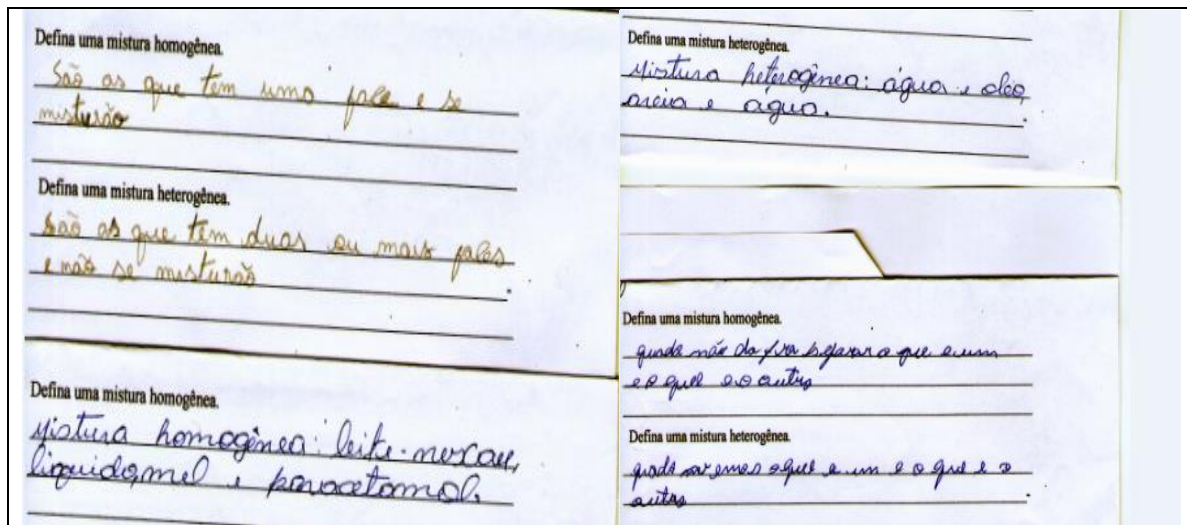 Defina uma mistura homogênea.
São as que têm uma fale e se
misturão
Defina uma mistura heterogênea.
São as que têm duas ou mais fales
e não se misturão
Defina uma mistura homogênea.
Mistura homogênea: leite-nescau,
liquido,mel e paracetamol.
Defina uma mistura heterogênea.
Mistura heterogênea: água e oleo,
areia e agua.
Defina uma mistura homogênea.
não da pra separar o que e um
e o que e o outro
Defina uma mistura heterogênea.
o que e um e o que e o
outro